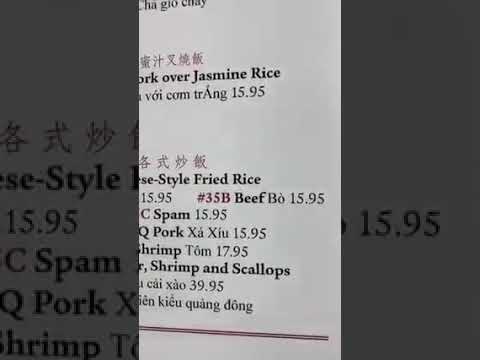 Chả giò chay
蜜汁叉燒飯
ork over Jasmine Rice
với cơm trẮng 15.95
各式炒飯
ese-Style Fried Rice
15.95 #35B Beef Bò 15.95
C Spam 15.95
Q Pork Xá Xíu 15.95
Shrimp Tôm 17.95
r, Shrimp and Scallops
cải xào 39.95
iên kiểu quảng đông
各式炒
15.95
C Spam
Q Pork
Shrimp
15.95